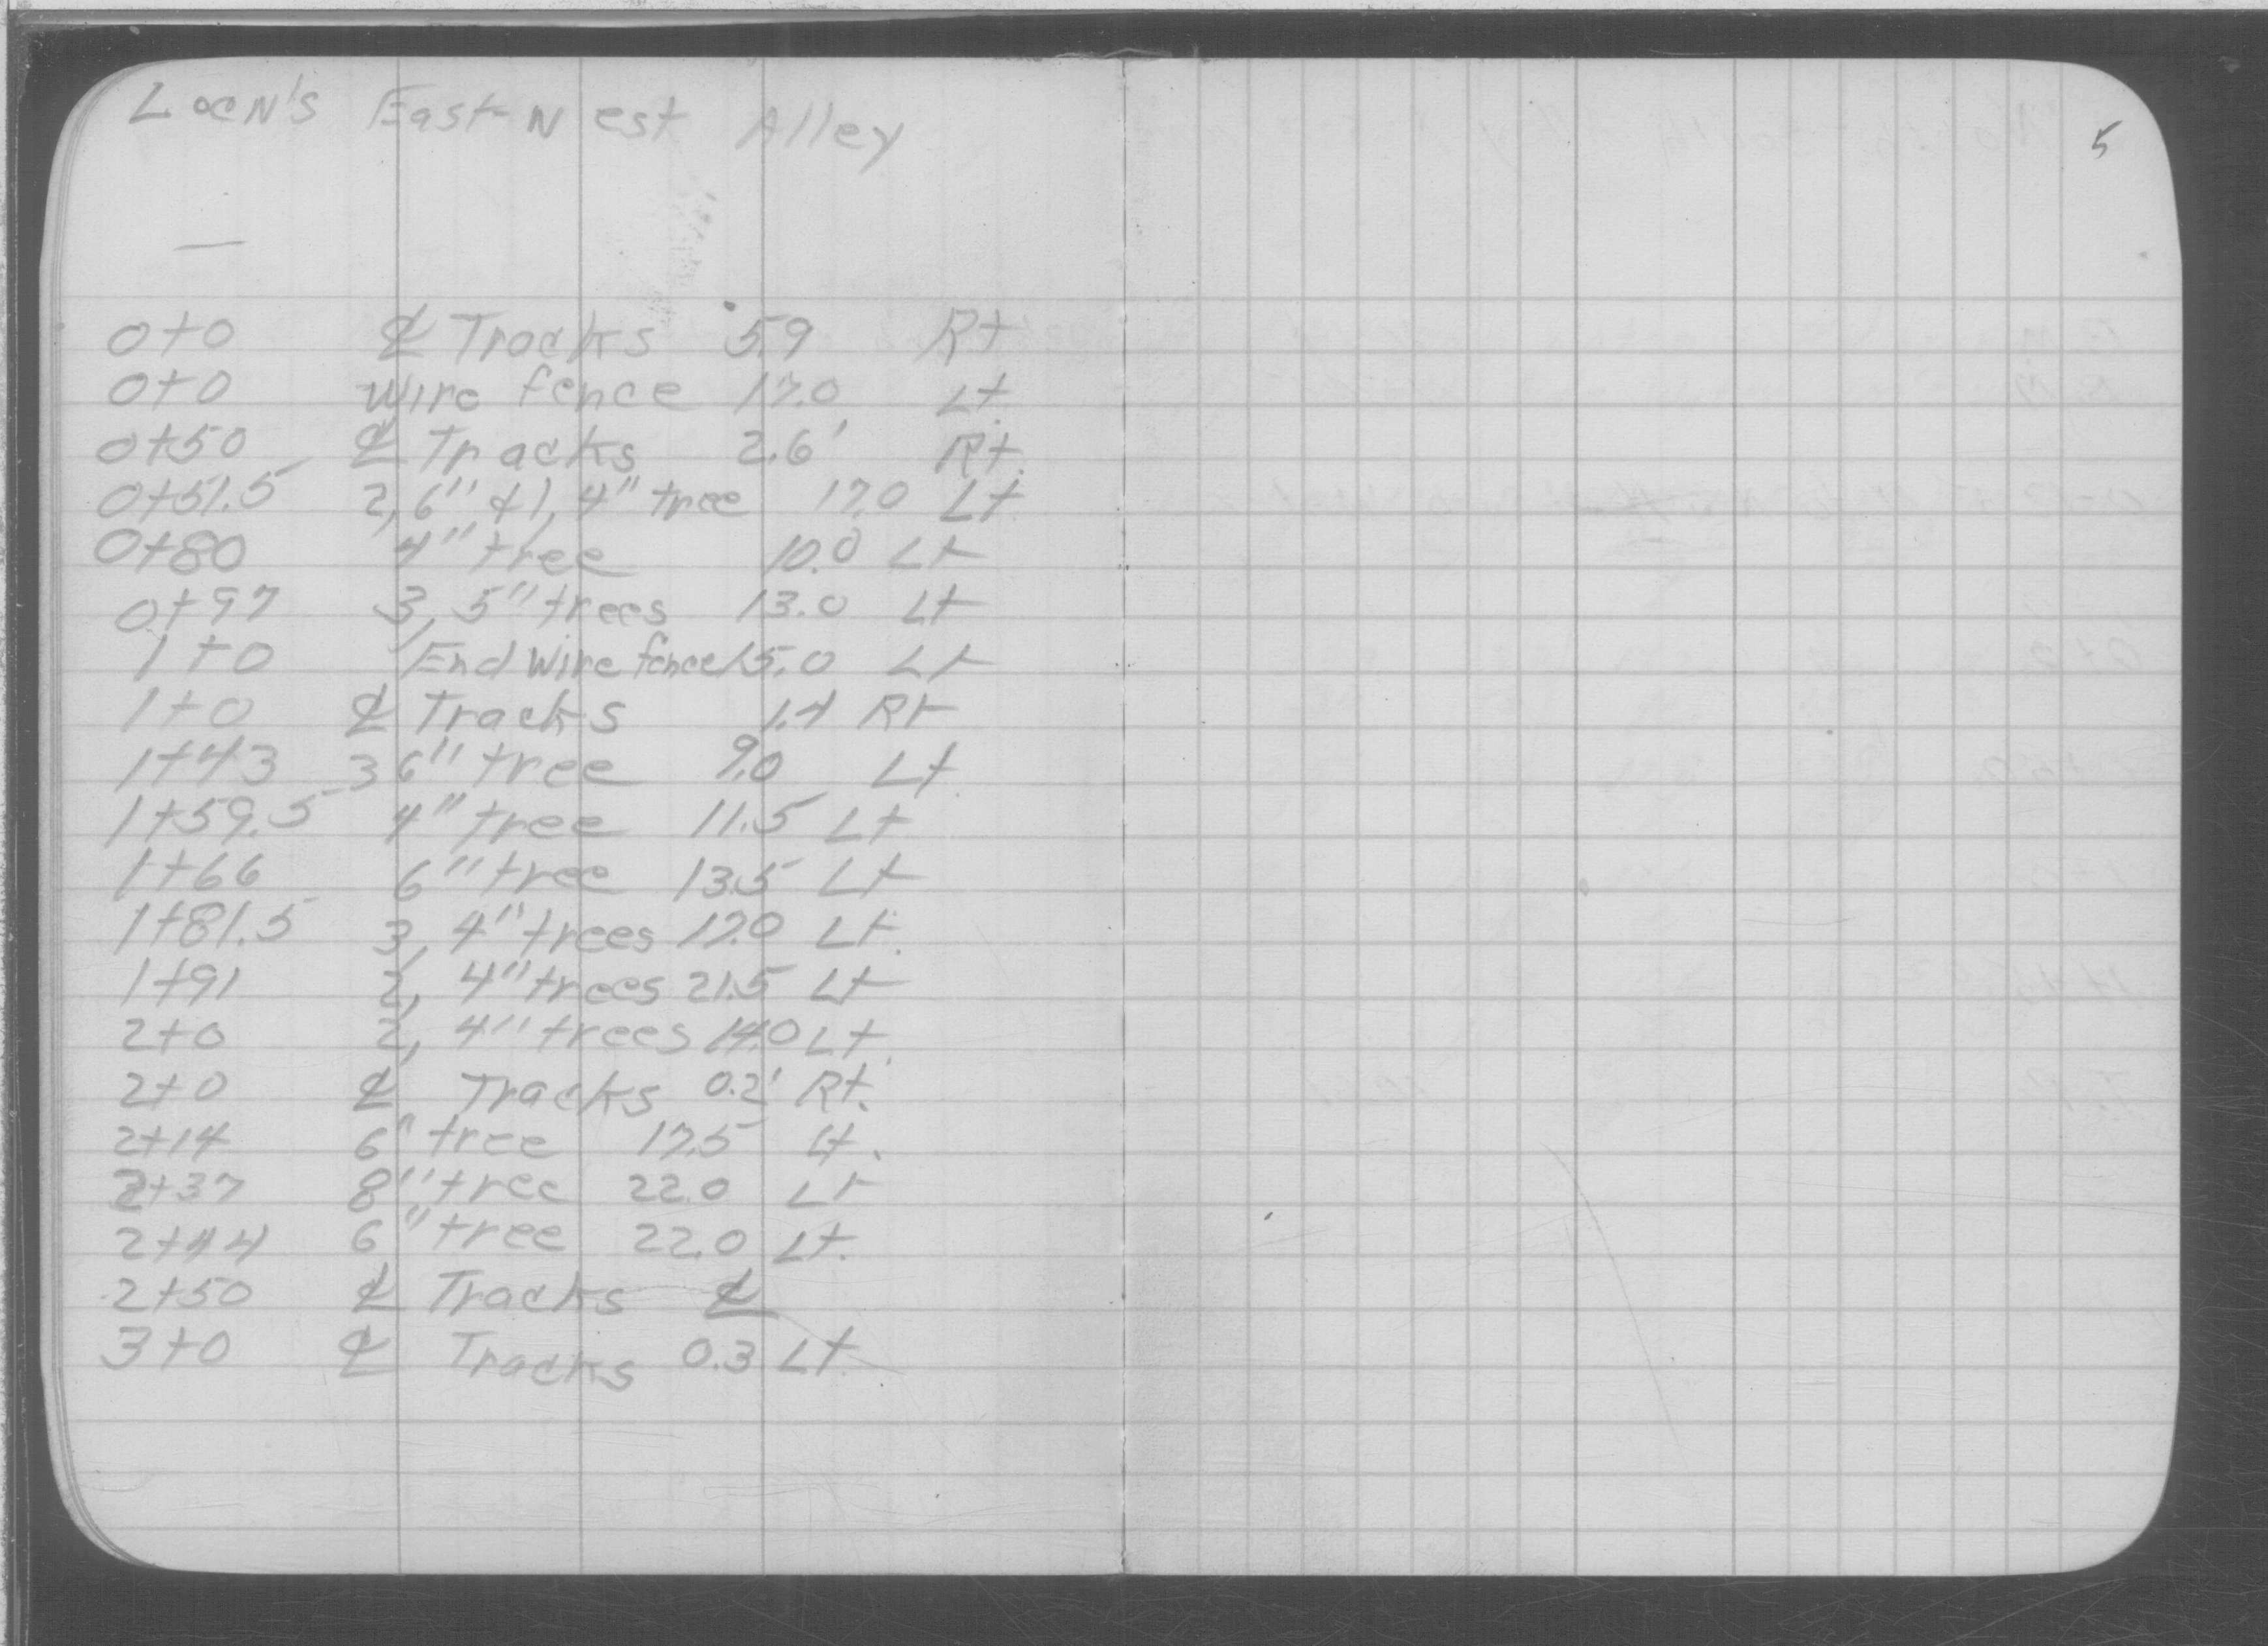 LocN's East-West Alley
5
0+0 ℄ Tracks 5.9 Rt
0+0 Wire fence 17.0 Lt.
0+50 ℄ Tracks 2.6' Rt.
0+51.5 2, 6" & 1, 4" tree 17.0 Lt
0+80 4" tree 10.0 Lt
0+97 3, 5" trees 13.0 Lt
1+0 End Wire fence 15.0 Lt
1+0 ℄ Tracks 1.4 Rt
1+43 3 6" tree 9.0 Lt.
1+59.5 4" tree 11.5 Lt
1+66 6" tree 13.5 Lt
1+81.5 3, 4" trees 17.0 Lt.
1+91 2, 4" trees 21.5 Lt
2+0 2, 4" trees 14.0 Lt.
2+0 ℄ Tracks 0.2' Rt.
2+14 6" tree 17.5 Lt.
2+37 8" tree 22.0 Lt
2+44 6" tree 22.0 Lt.
2+50 ℄ Tracks ℄
3+0 ℄ Tracks 0.3 Lt.